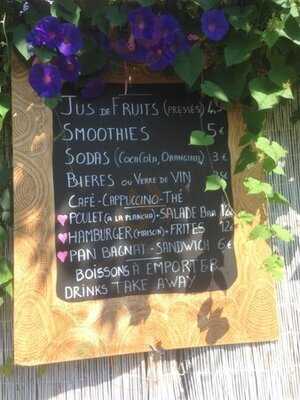 JUS DE FRUITS (PRESSÉS) 4,5
SMOOTHIES 5€
SODAS (COCACOLA, ORANGINA) 3€
BIERES OU VERRE DE VIN
CAFÉ-CAPPUCCINO-THÉ
POULET (A LA PLANCHA)-SALADE BAR 12€
HAMBURGER (MAISON)-FRITES 12€
PAN BAGNAT-SANDWICH 6€
BOISSONS À EMPORTER
DRINKS TAKE AWAY